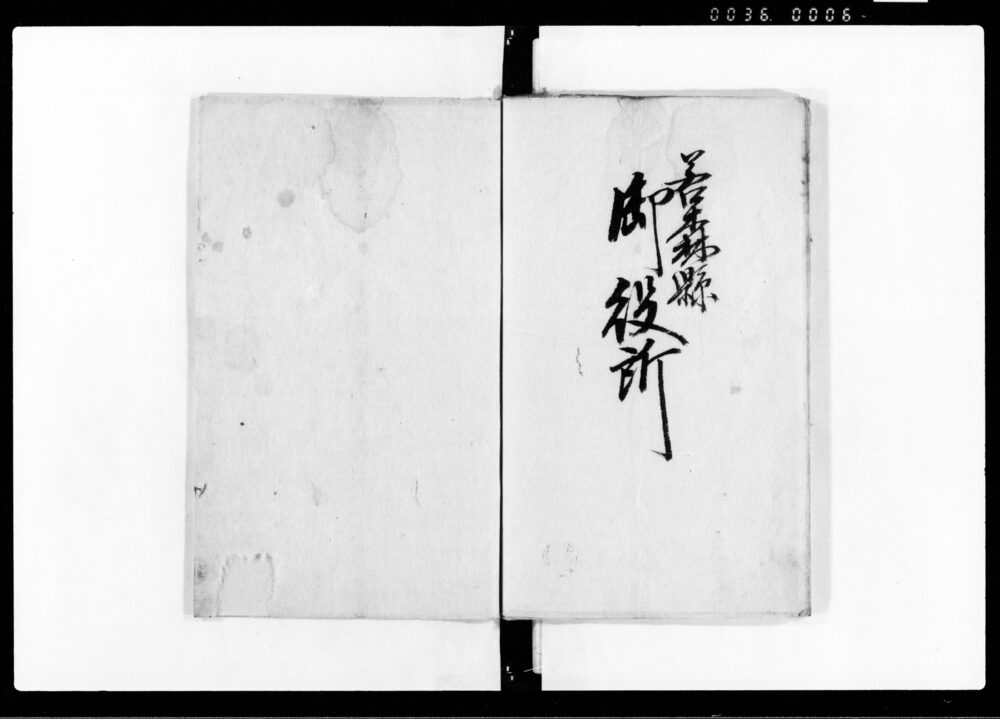 0036 0006
若森縣
御役所